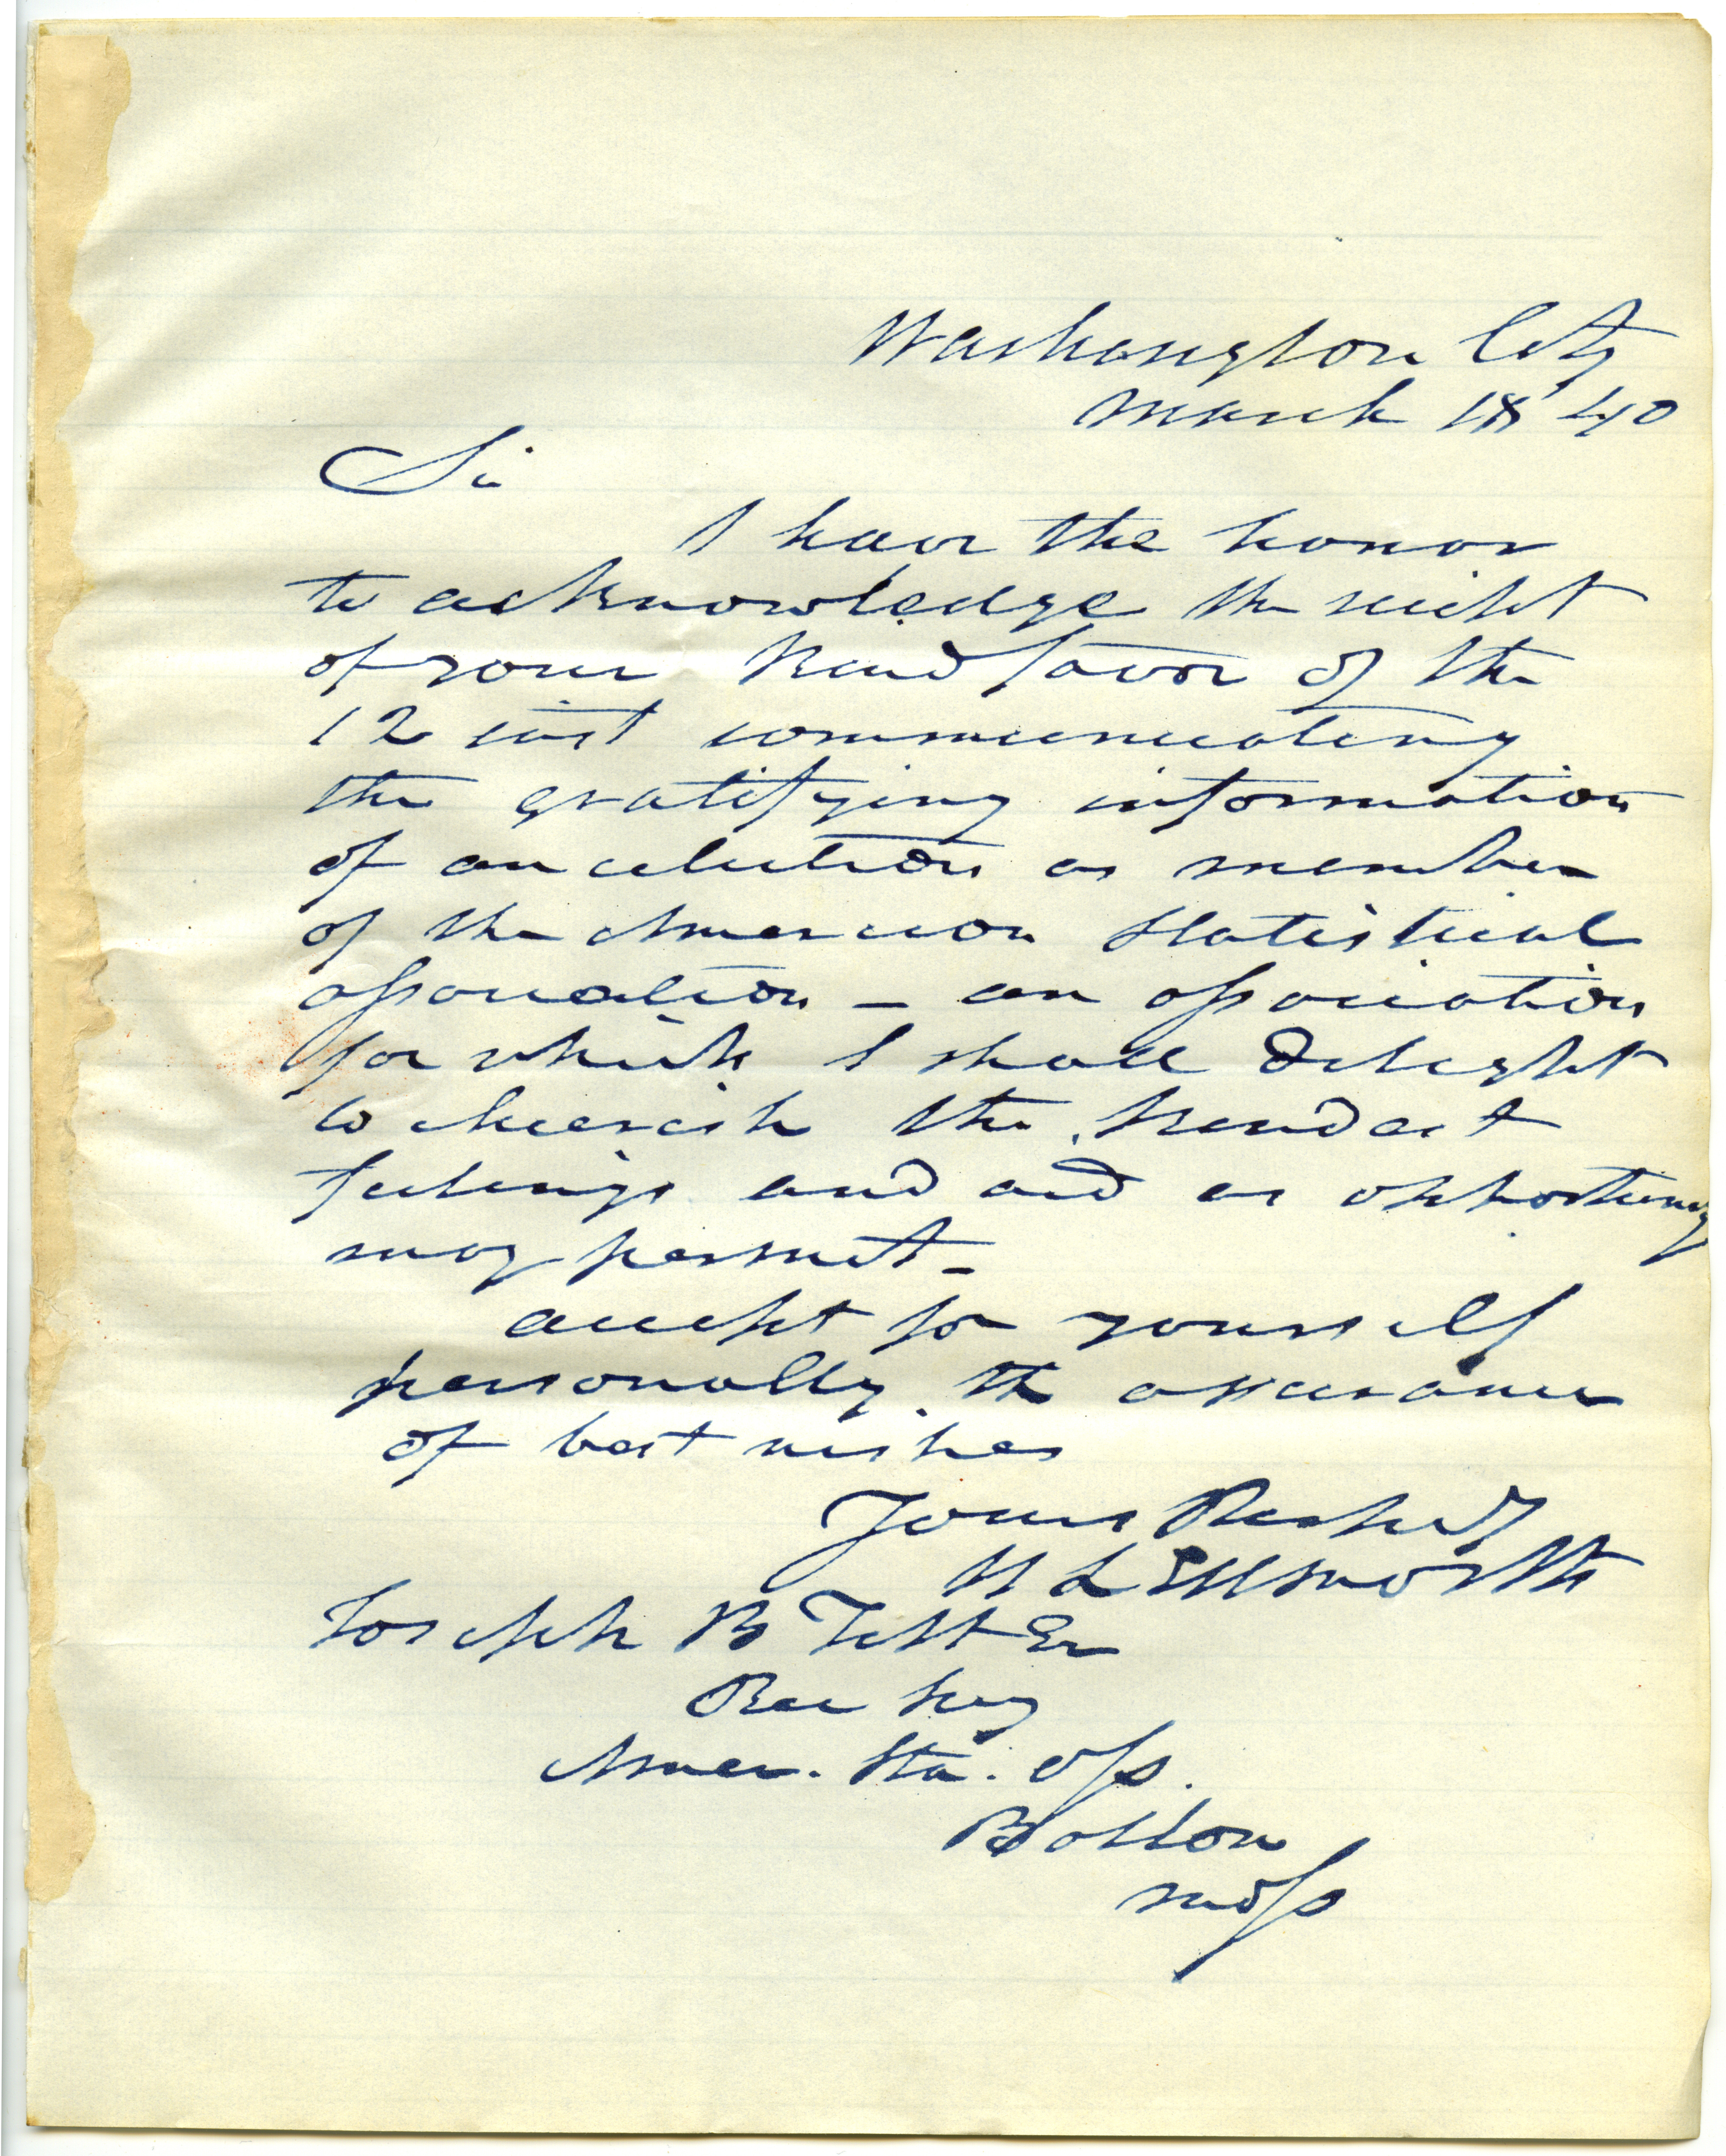 Washington City
March 18 40
Sir
I have the honor
to acknowledge the receipt
of your kind favor of the
12 inst communicating
the gratifying information
of an election as member
of the American Statistical
Association – an association
for which I shall delight
to cherish the kindest
feelings and aid as opportunity
may permit –
accept for yourself
personally the assurance
of best wishes
Yours Respectfy
H L Ellsworth
Joseph B Felt Esr
Rec Secy
Amer. Sta. Ass.
Boston
Mass